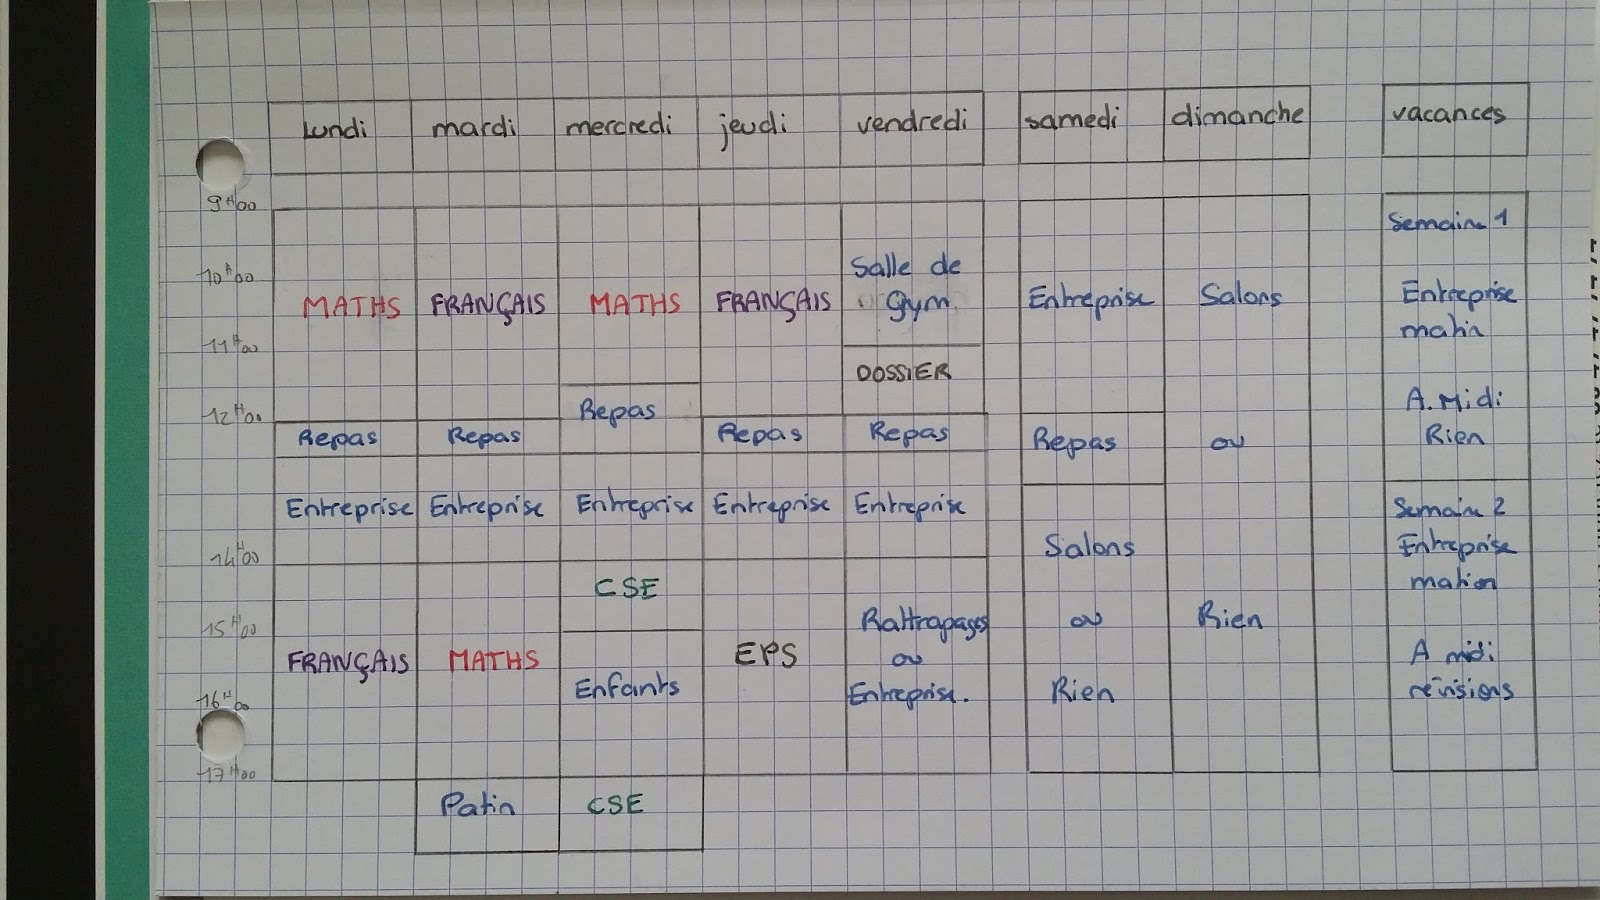 lundi mardi mercredi jeudi vendredi samedi dimanche vacances
9H00
Semaine 1
10H00
Salle de
Gym
MATHS FRANÇAIS MATHS FRANÇAIS Entreprise Salons Entreprise
matin
11H00
DOSSIER
12H00
Repas
A. Midi
Rien
Repas Repas Repas Repas Repas ou
Entreprise Entreprise Entreprise Entreprise Entreprise
Semaine 2
Entreprise
matin
14H00
Salons
CSE
15H00
Rattrapages ou Rien
ou
Entreprise.
FRANÇAIS MATHS EPS
A midi
révisions
Enfants
Rien
16H00
17H00
Patin CSE